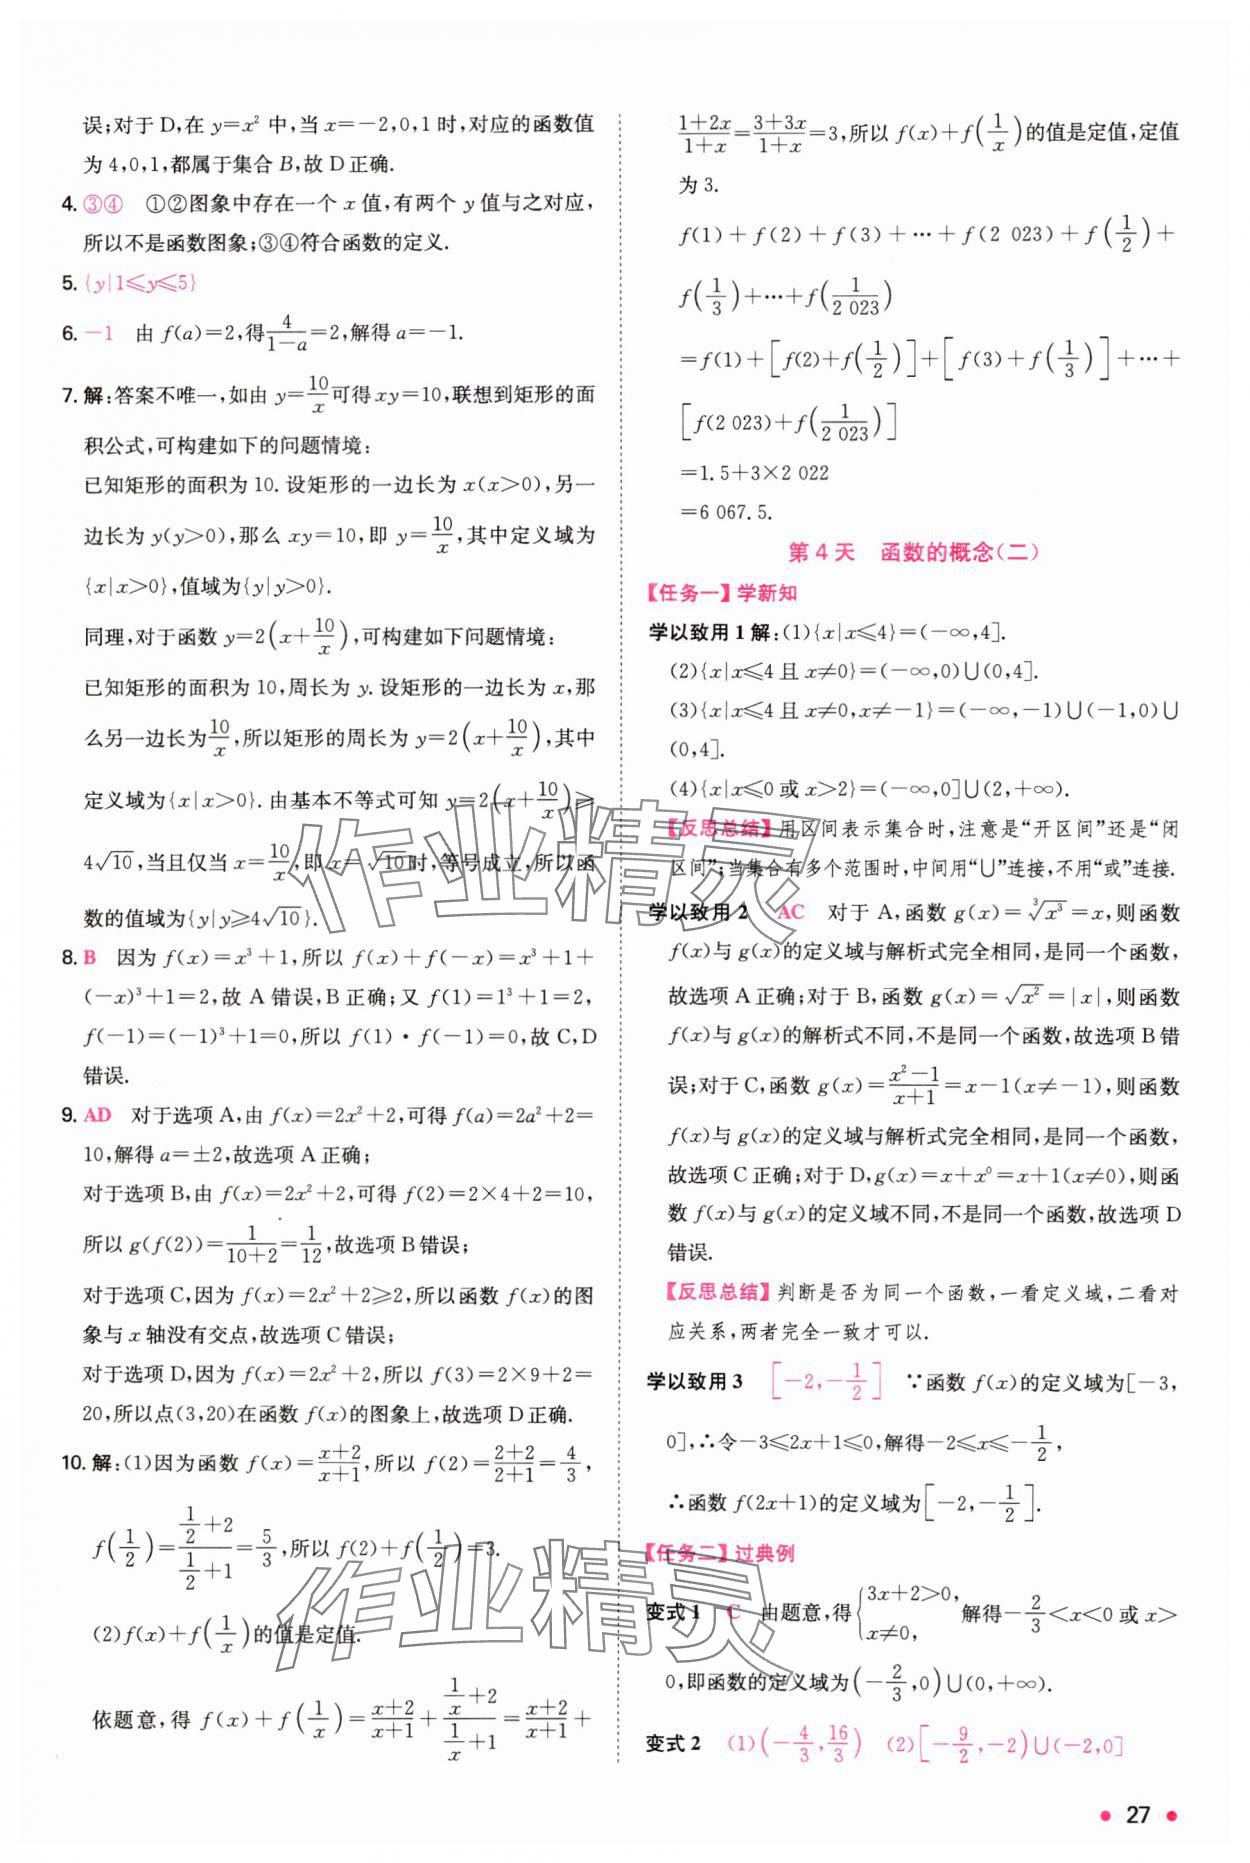 误;对于 D,在 y=x² 中,当 x=-2,0,1 时,对应的函数值
为 4,0,1,都属于集合 B,故 D 正确.
4. ③④ ①②图象中存在一个 x 值,有两个 y 值与之对应,
所以不是函数图象;③④符合函数的定义.
5. {y|1≤y≤5}
6. -1 由 f(a)=2,得4/(1-a)=2,解得 a=-1.
7. 解:答案不唯一,如由 y=10/x可得 xy=10,联想到矩形的面
积公式,可构建如下的问题情境:
已知矩形的面积为 10. 设矩形的一边长为 x(x>0),另一
边长为 y(y>0),那么 xy=10,即 y=10/x,其中定义域为
{x|x>0},值域为{y|y>0}.
同理,对于函数 y=2(x+10/x),可构建如下问题情境:
已知矩形的面积为 10,周长为 y. 设矩形的一边长为 x,那
么另一边长为10/x,所以矩形的周长为 y=2(x+10/x),其中
定义域为{x|x>0}. 由基本不等式可知 y=2(x+10/x)≥
4√10,当且仅当 x=10/x,即 x=√10时,等号成立,所以函
数的值域为{y|y≥4√10}.
8. B 因为 f(x)=x³+1,所以 f(x)+f(-x)=x³+1+
(-x)³+1=2,故 A 错误,B 正确;又 f(1)=1³+1=2,
f(-1)=(-1)³+1=0,所以 f(1)·f(-1)=0,故 C,D
错误.
9. AD 对于选项 A,由 f(x)=2x²+2,可得 f(a)=2a²+2=
10,解得 a=±2,故选项 A 正确;
对于选项 B,由 f(x)=2x²+2,可得 f(2)=2×4+2=10,
所以 g(f(2))=1/(10+2)=1/12,故选项 B 错误;
对于选项 C,因为 f(x)=2x²+2≥2,所以函数 f(x)的图
象与 x 轴没有交点,故选项 C 错误;
对于选项 D,因为 f(x)=2x²+2,所以 f(3)=2×9+2=
20,所以点(3,20)在函数 f(x)的图象上,故选项 D 正确.
10. 解:(1)因为函数 f(x)=(x+2)/(x+1),所以 f(2)=(2+2)/(2+1)=4/3,
f(1/2)=(1/2+2)/(1/2+1)=5/3,所以 f(2)+f(1/2)=3.
(2)f(x)+f(1/x)的值是定值.
依题意,得 f(x)+f(1/x)=(x+2)/(x+1)+(1/x+2)/(1/x+1)=(x+2)/(x+1)+
(1+2x)/(1+x)=(3+3x)/(1+x)=3,所以 f(x)+f(1/x)的值是定值,定值
为 3.
f(1)+f(2)+f(3)+…+f(2 023)+f(1/2)+
f(1/3)+…+f(1/2 023)
=f(1)+[f(2)+f(1/2)]+[f(3)+f(1/3)]+…+
[f(2 023)+f(1/2 023)]
=1.5+3×2 022
=6 067.5.
第 4 天 函数的概念(二)
【任务一】学新知
学以致用 1 解:(1){x|x≤4}=(-∞,4].
(2){x|x≤4 且 x≠0}=(-∞,0)∪(0,4].
(3){x|x≤4 且 x≠0,x≠-1}=(-∞,-1)∪(-1,0)∪
(0,4].
(4){x|x≤0 或 x>2}=(-∞,0]∪(2,+∞).
【反思总结】用区间表示集合时,注意是“开区间”还是“闭
区间”;当集合有多个范围时,中间用“∪”连接,不用“或”连接.
学以致用 2 AC 对于 A,函数 g(x)=³√x³=x,则函数
f(x)与 g(x)的定义域与解析式完全相同,是同一个函数,
故选项 A 正确;对于 B,函数 g(x)=√x²=|x|,则函数
f(x)与 g(x)的解析式不同,不是同一个函数,故选项 B 错
误;对于 C,函数 g(x)=(x²-1)/(x+1)=x-1(x≠-1),则函数
f(x)与 g(x)的定义域与解析式完全相同,是同一个函数,
故选项 C 正确;对于 D,g(x)=x+x⁰=x+1(x≠0),则函
数 f(x)与 g(x)的定义域不同,不是同一个函数,故选项 D
错误.
【反思总结】判断是否为同一个函数,一看定义域,二看对
应关系,两者完全一致才可以.
学以致用 3 [-2,-1/2] ∵函数 f(x)的定义域为[-3,
0],∴令-3≤2x+1≤0,解得-2≤x≤-1/2,
∴函数 f(2x+1)的定义域为[-2,-1/2].
【任务二】过典例
变式 1 C 由题意,得{3x+2>0, x≠0, 解得-2/3<x<0 或 x>
0,即函数的定义域为(-2/3,0)∪(0,+∞).
变式 2 (1)(-4/3,16/3) (2)[-9/2,-2)∪(-2,0]
27
作业精灵
作业精灵